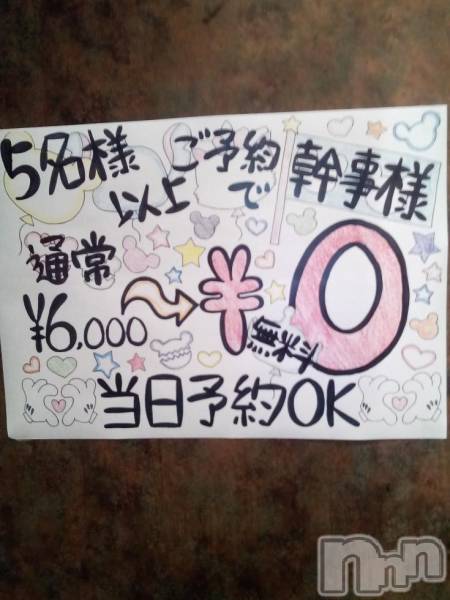 5名様
以上
ご予約
で
幹事様
通常
¥6,000
¥0
無料
当日予約OK
nnn